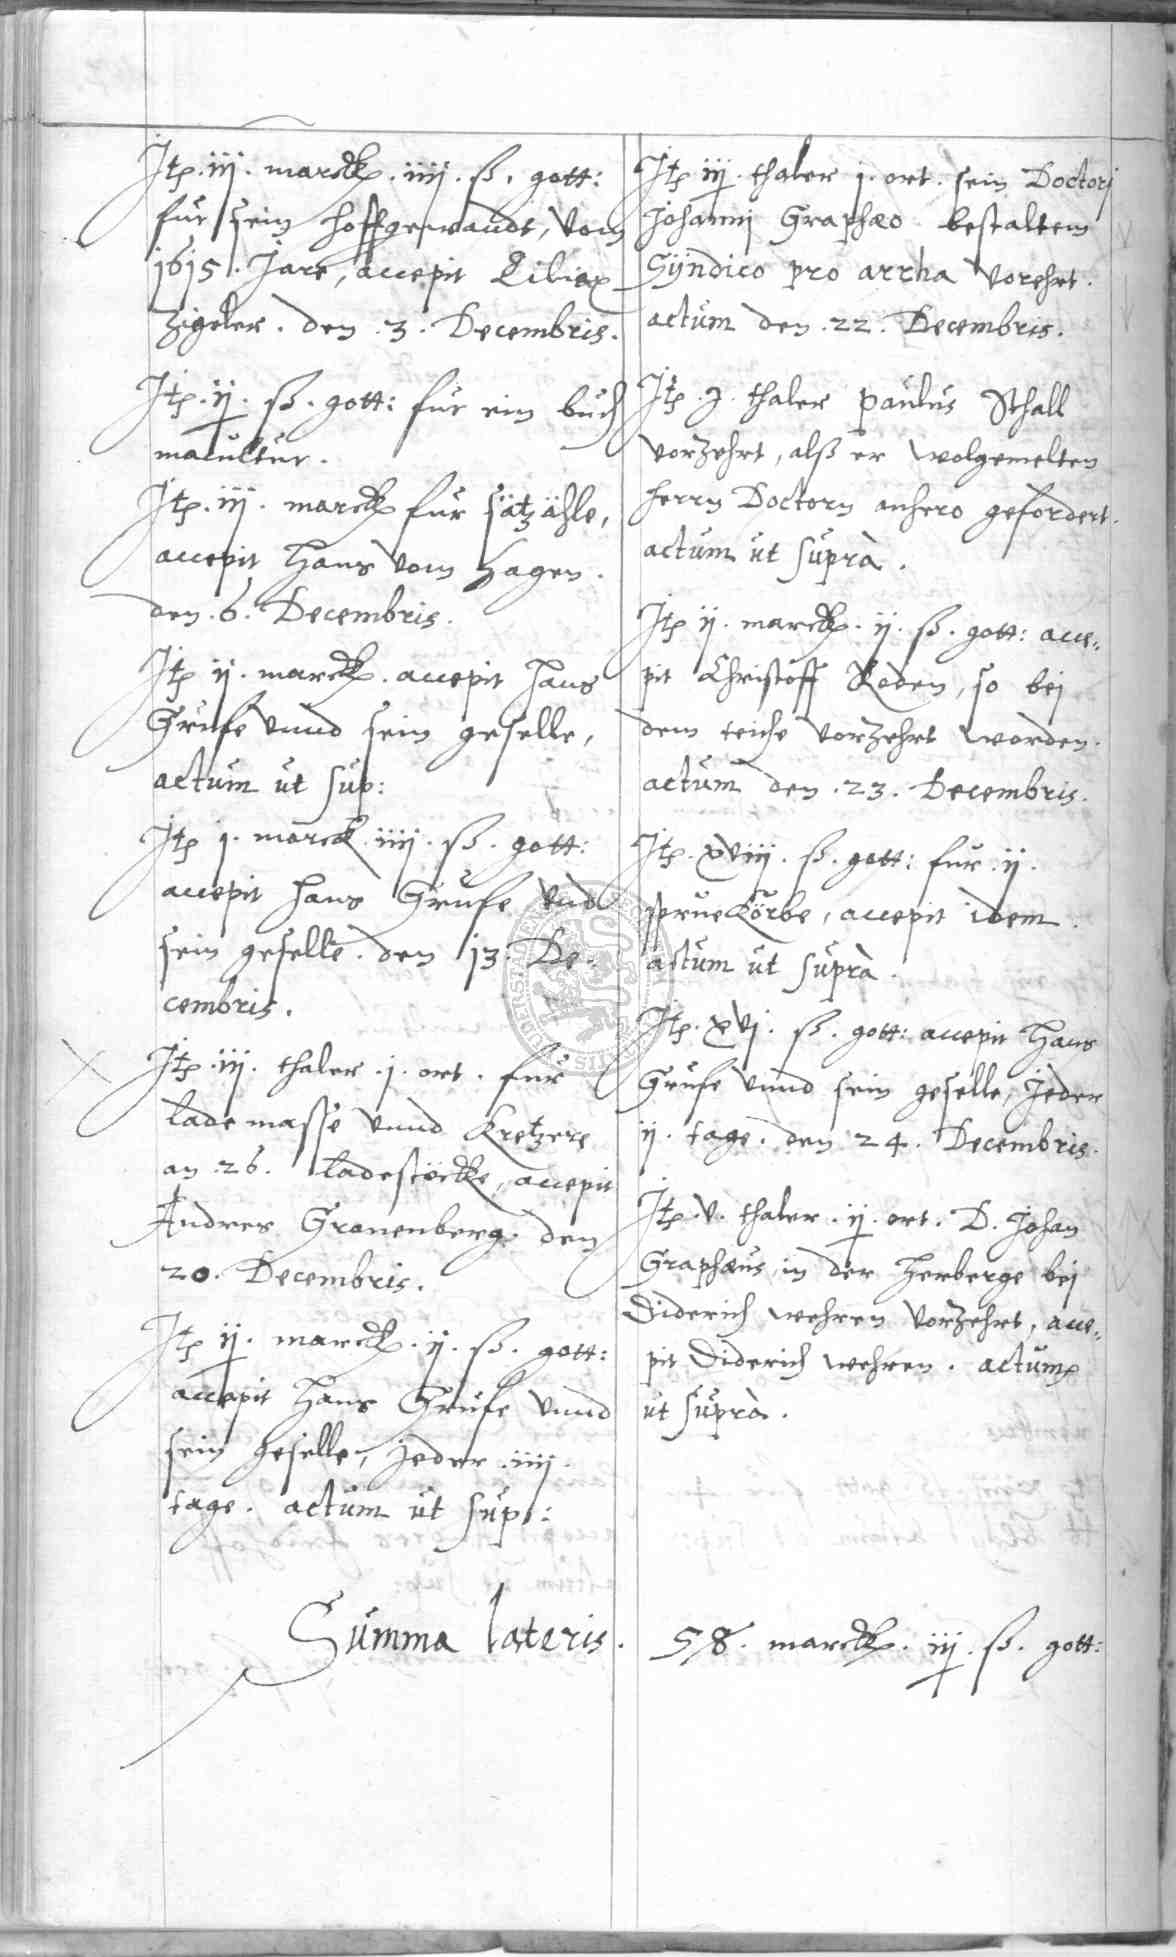 Itp. iij. marck. iiij. ß. gott:
fur sein hoffgewandt, vom
1615. Jare, accepit Ciliax
Zigeler. den .3. Decembris.
Itp. ij. ß. gott: fur ein buch
macultur.
Itp. iij. marck fur sätzähle,
accepit Hans vom Hagen.
den .6. Decembris.
Itp ij. marck. accepit Hans
Grufe vnnd sein geselle,
actum ut sup:
Itp j. marck iiij. ß. gott:
accepit Hans Grufe vnd
sein geselle. den 13. De-
cembris.
Itp. iij. thaler .j. ort. fur
lade masse vnnd Kretzere
an .26. ladestöcke, accepit
Andres Gronenberg. den
20. Decembris.
Itp ij. marck. ij. ß. gott:
accepit Hans Grufe vnnd
sein geselle, jeder .iiij.
tage. actum ut sup:
Itp iij. thaler j. ort. sein Doctorj
Johannj Graphæo bestaltem
Syndico pro arrha vorehrt.
actum den .22. Decembris.
Itp .j. thaler Paulus Schall
vorzehrt, alß er wolgemelten
Herrn Doctorn anhero gefordert.
actum ut supra.
Itp ij. marck. ij. ß. gott: acce-
pit Christoff Roden, so bej
dem teiche vorzehrt worden.
actum den .23. Decembris.
Itp. xviij. ß. gott: fur .ij.
sprueKörbe, accepit idem.
actum ut supra.
Itp. xvj. ß. gott: accepit Hans
Grufe vnnd sein geselle, Jeder
ij. tage. den 24. Decembris.
Itp. v. thaler .ij. ort. D. Johan
Graphæus in der Herberge bej
Diderich wehren vorzehrt, acce-
pit Diderich wehren. actum
ut supra.
Summa lateris. 58. marck. iij. ß. gott: